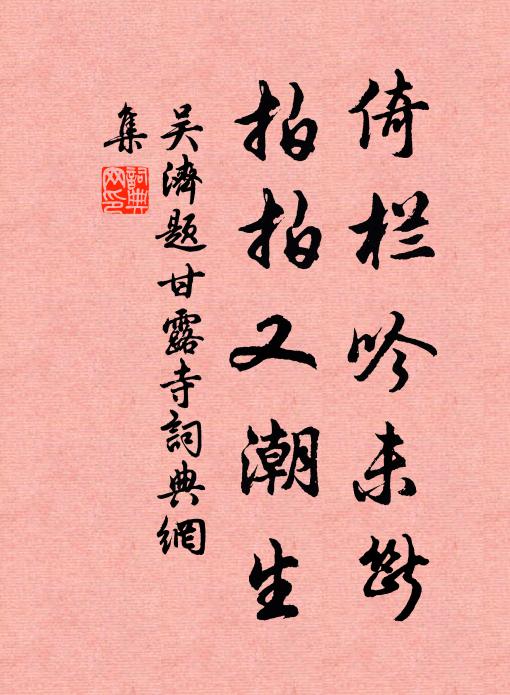 倚栏吟未断
拍拍又潮生
吴济题甘露寺词典網
集
詞典
网印